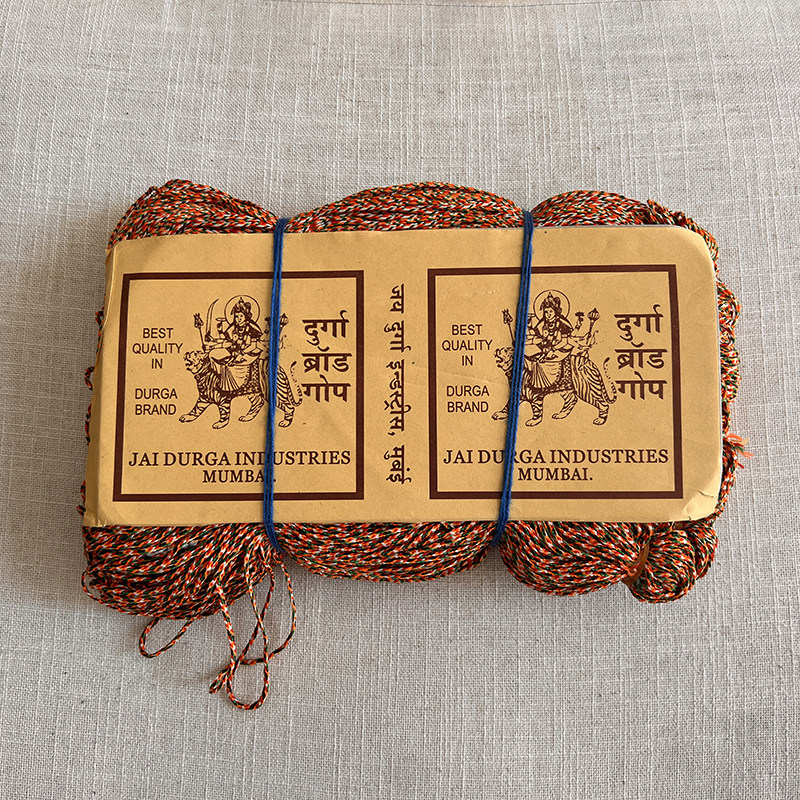 BEST
QUALITY
IN
DURGA
BRAND
दुर्गा
ब्रॉड
गोप
JAI DURGA INDUSTRIES
MUMBAI.
जय दुर्गा इन्डस्ट्रीस, मुंबई
BEST
QUALITY
IN
DURGA
BRAND
दुर्गा
ब्रॉड
गोप
JAI DURGA INDUSTRIES
MUMBAI.